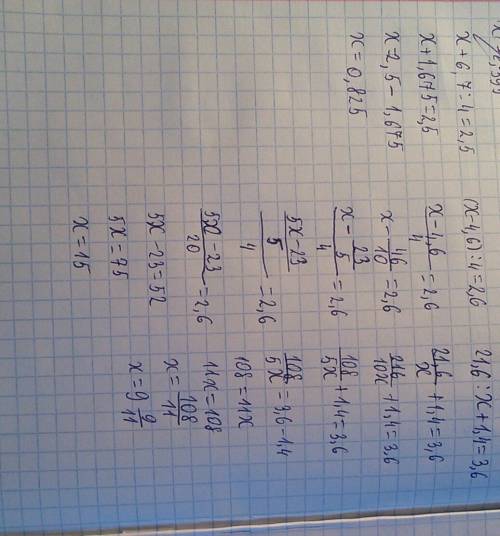 x+6,7:4=2,5
x+1,675=2,5
x=2,5-1,675
x=0,825
(x-4,6):4=2,6
x-4,6/4=2,6
x-46/10=2,6
x-23/5/4=2,6
5x-23/5/4=2,6
5x-23/20=2,6
5x-23=52
5x=75
x=15
21,6:x+1,4=3,6
21,6/x+1,4=3,6
216/10x+1,4=3,6
108/5x+1,4=3,6
108/5x=3,6-1,4
108=11x
11x=108
x=108/11
x=9 9/11